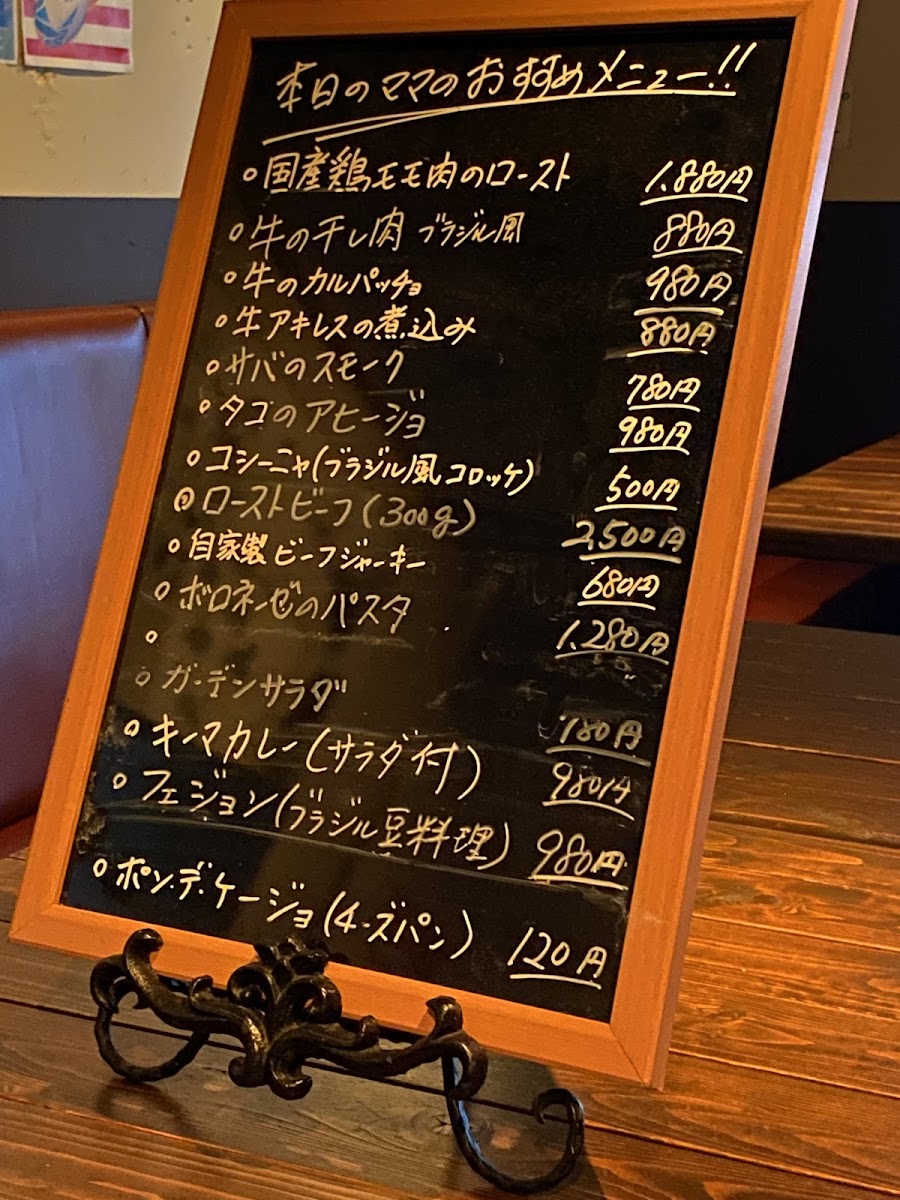 本日のママのおすすめメニュー!!
○国産鶏モモ肉のロースト 1.880円
○牛の干し肉 ブラジル風 880円
○牛のカルパッチョ 980円
○牛アキレスの煮込み 880円
○サバのスモーク 780円
○タコのアヒージョ 980円
○コシーニャ(ブラジル風コロッケ) 500円
◎ローストビーフ(300g) 2,500円
○自家製ビーフジャーキー 680円
○ボロネーゼのパスタ 1.280円
○
○ガーデンサラダ 780円
○キーマカレー(サラダ付) 980円
○フェジョン(ブラジル豆料理) 980円
○ポン.デ.ケージョ(チーズパン) 120円